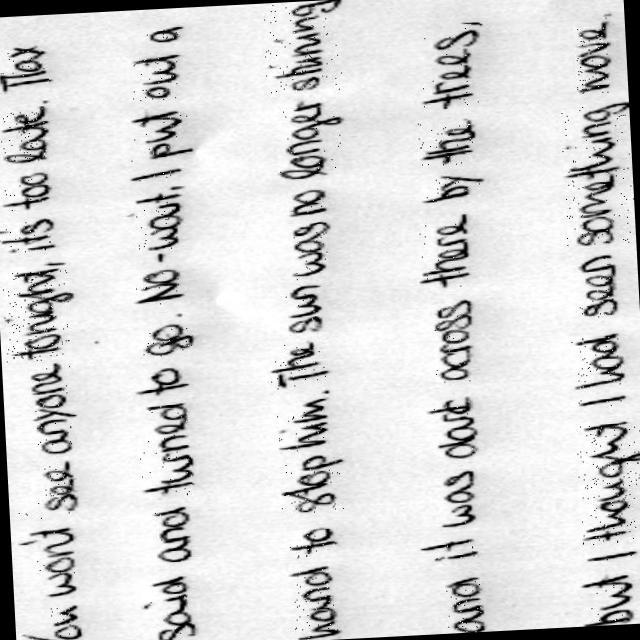 won't see anyone tonight, it's too late. Max
said and turned to go. No-wait, I put out a
hand to stop him. The sun was no longer shining
and it was dark across there by the trees,
but I thought I had seen something move.